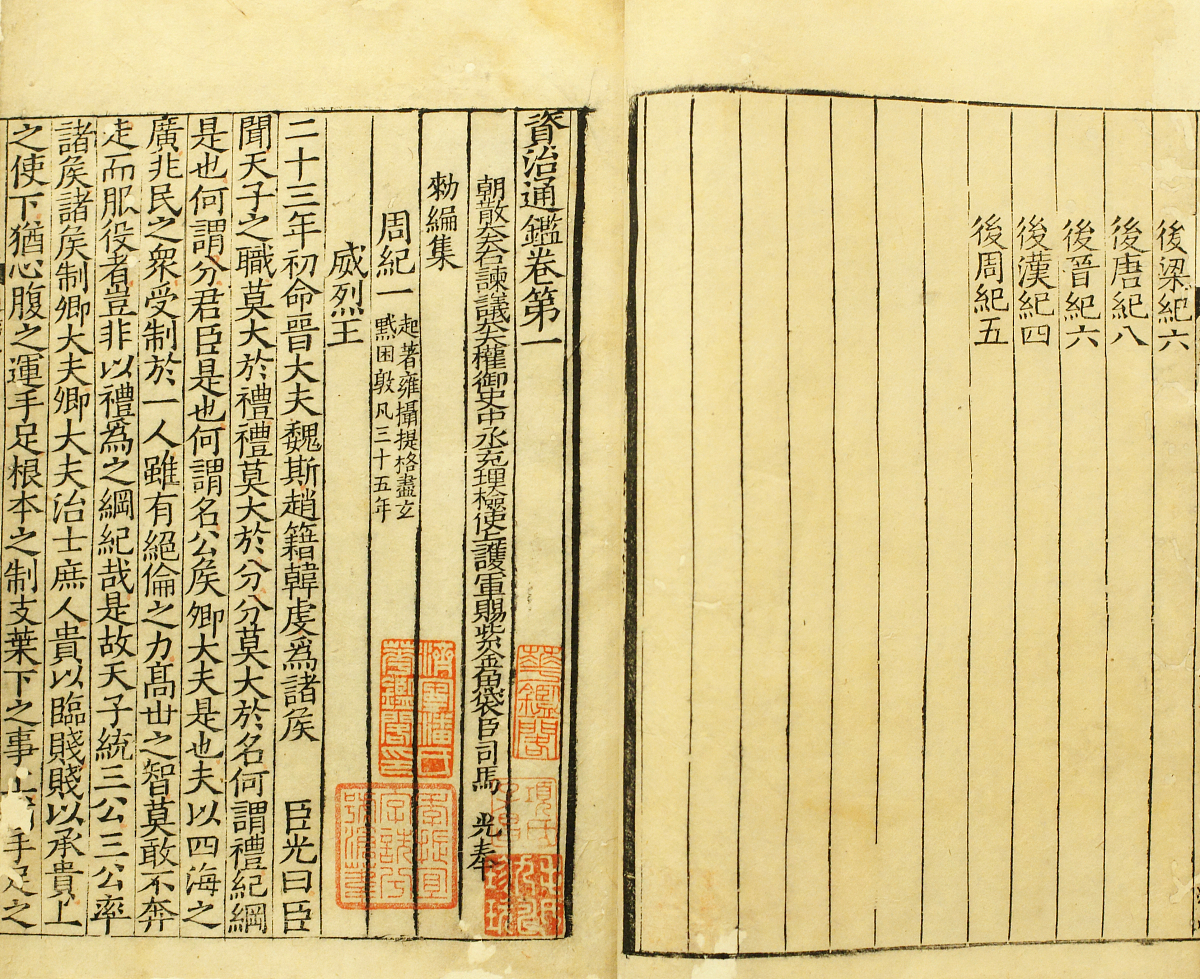 後梁紀六
後唐紀八
後晉紀六
後漢紀四
後周紀五
資治通鑑卷第一
朝散大夫右諫議大夫權御史中丞充理檢使上護軍賜紫金魚袋臣司馬 光奉
勑編集
周紀一 起著雍攝提格盡玄
黓困敦凡三十五年
威烈王
二十三年初命晉大夫魏斯趙籍韓虔爲諸侯 臣光曰臣
聞天子之職莫大於禮禮莫大於分分莫大於名何謂禮紀綱
是也何謂分君臣是也何謂名公侯卿大夫是也夫以四海之
廣非民之衆受制於一人雖有絕倫之力高世之智莫敢不奔
走而服役者豈非以禮爲之綱紀哉是故天子統三公三公率
諸侯諸侯制卿大夫卿大夫治士庶人貴以臨賤賤以承貴上
之使下猶心腹之運手足根本之制支葉下之事上 手足之